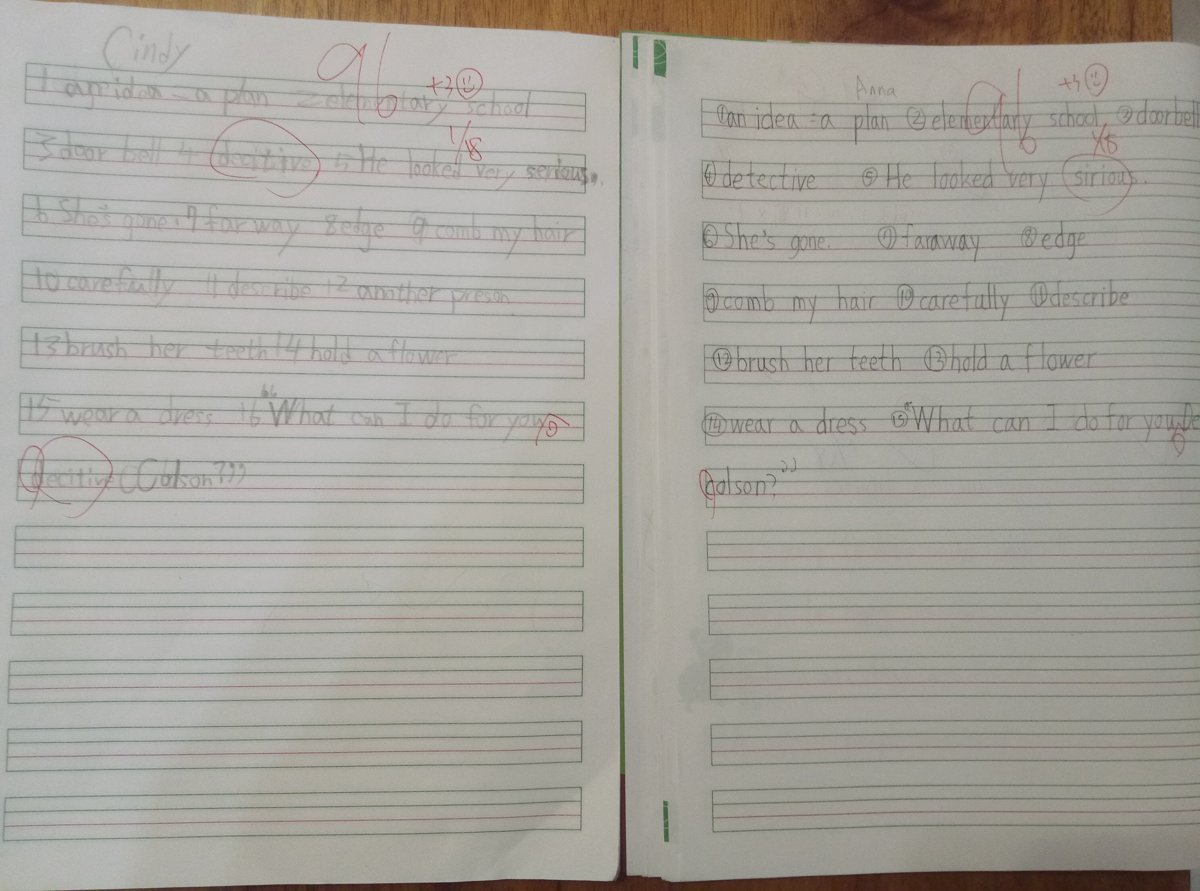 Cindy
96
+3
1 an idea = a plan 2 elementary school
1/18
3 door bell 4 decitive 5 He looked very serious.
6 She's gone. 7 far way 8 edge 9 comb my hair
10 carefully 11 describe 12 another preson
13 brush her teeth 14 hold a flower
15 wear a dress 16 "What can I do for you
decitive Colson?"
Anna
96
+3
①an idea = a plan ②elementary school ③doorbell
1/18
④detective ⑤He looked very sirious.
⑥She's gone. ⑦faraway ⑧edge
⑨comb my hair ⑩carefully ⑪describe
⑫brush her teeth ⑬hold a flower
⑭wear a dress ⑮"What can I do for you, De
golson?"